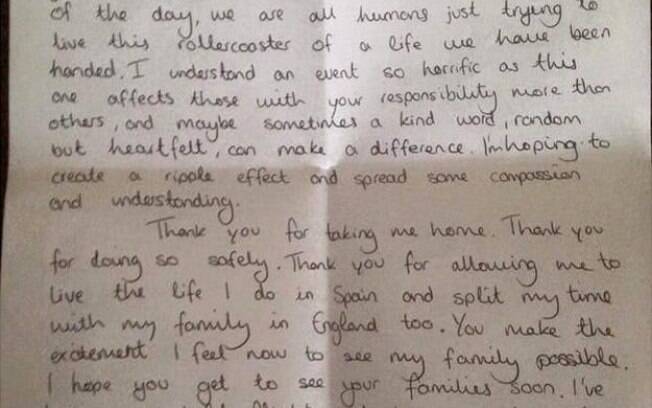 of the day, we are all humans just trying to
live this rollercoaster of a life we have been
handed. I understand an event so horrific as this
one affects those with your responsibility more than
others, and maybe sometimes a kind word, random
but heartfelt, can make a difference. I'm hoping to
create a ripple effect and spread some compassion
and understanding.
Thank you for taking me home. Thank you
for doing so safely. Thank you for allowing me to
live the life I do in Spain and split my time
with my family in England too. You make the
excitement I feel now to see my family possible.
I hope you get to see your families soon. I've